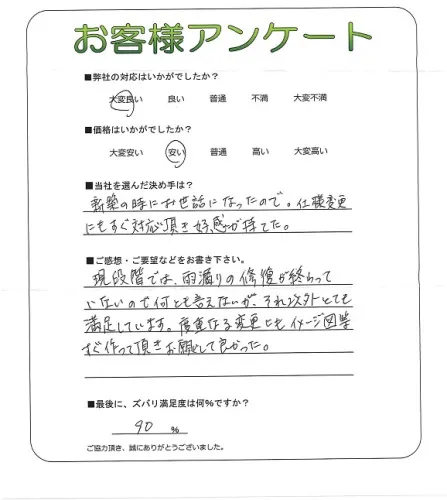 お客様アンケート
■弊社の対応はいかがでしたか？
大変良い 良い 普通 不満 大変不満
■価格はいかがでしたか？
大変安い 安い 普通 高い 大変高い
■当社を選んだ決め手は？
新築の時にお世話になったので。仕様変更
にもすぐ対応頂き好感が持てた。
■ご感想・ご要望などをお書き下さい。
現段階では、雨漏りの修復が終わって
いないので何とも言えないが、それ以外とても
満足しています。度重なる変更にもイメージ図等
すぐ作って頂きお願いして良かった。
■最後に、ズバリ満足度は何%ですか？
90 %
ご協力頂き、誠にありがとうございました。